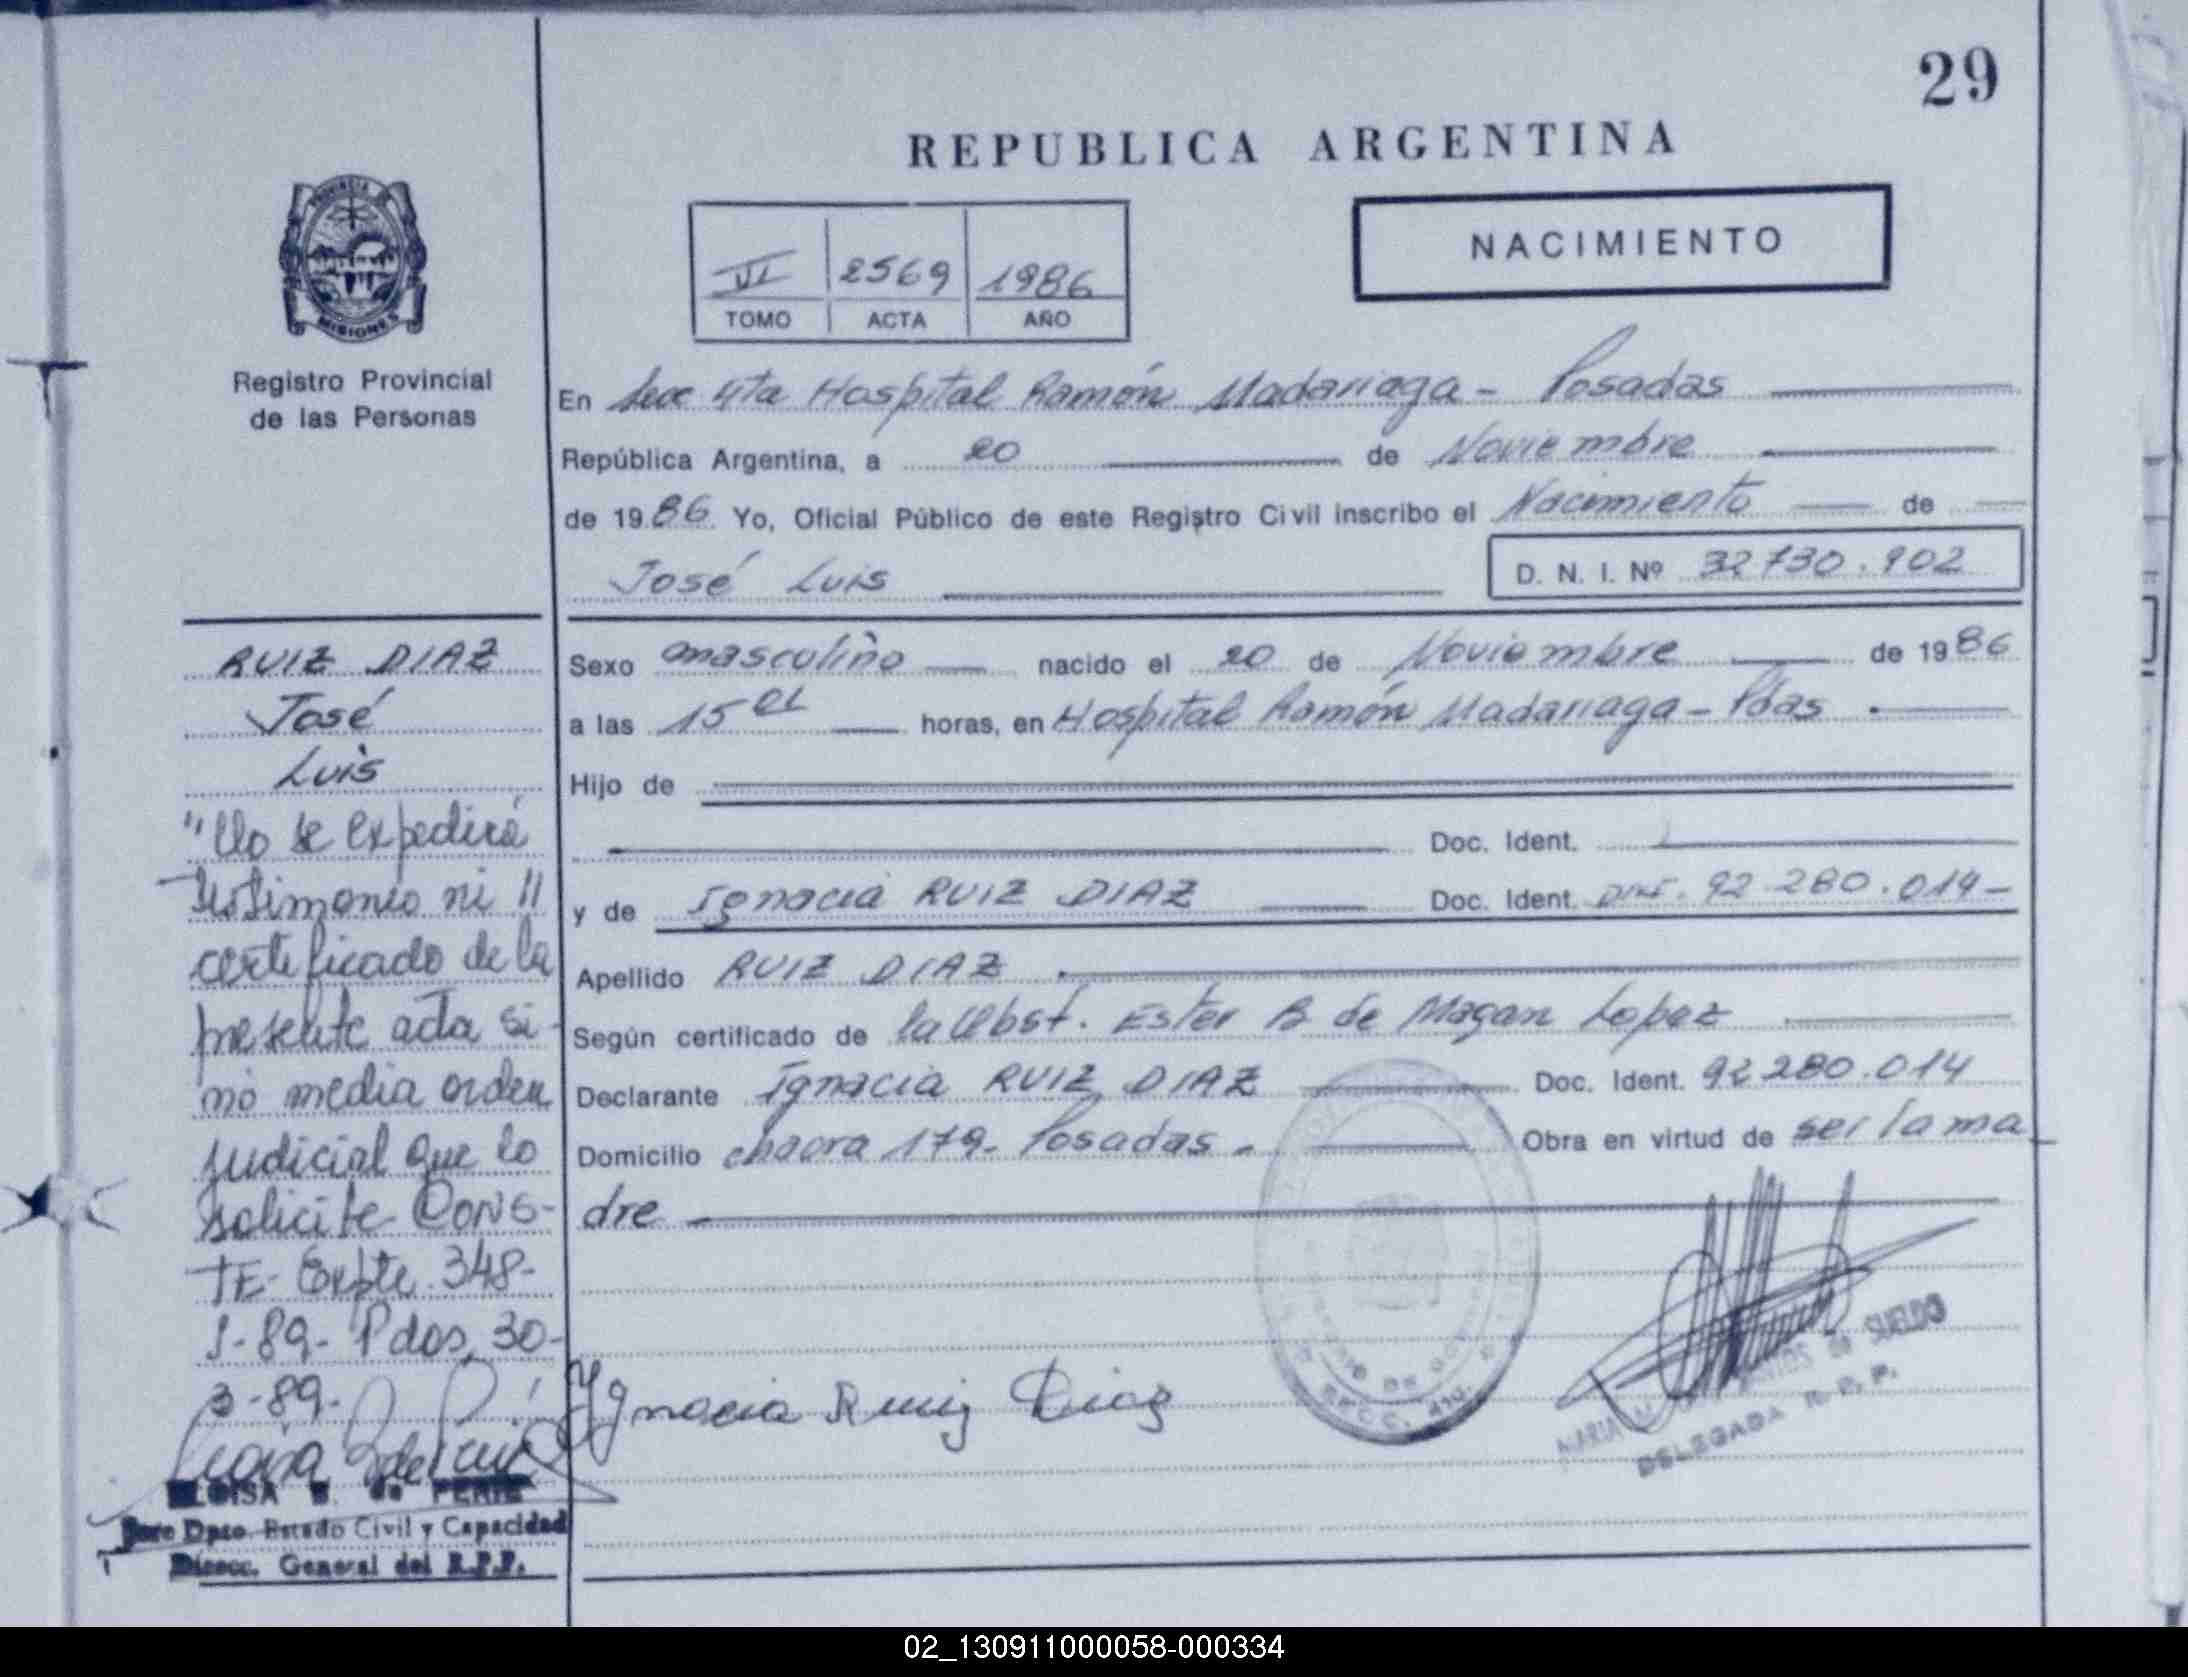 29
REPUBLICA ARGENTINA
PROVINCIA DE
MISIONES
Registro Provincial
de las Personas
VI 2569 1986
TOMO ACTA AÑO
NACIMIENTO
En Secc 4ta Hospital Ramón Madariaga - Posadas
República Argentina, a 20 de Noviembre
de 1986 Yo, Oficial Público de este Registro Civil inscribo el Nacimiento de
José Luis
D. N. I. Nº 32730.902
RUIZ DIAZ
José
Luis
Sexo masculino nacido el 20 de Noviembre de 1986
a las 15 horas, en Hospital Ramón Madariaga - Pdas.
Hijo de
Doc. Ident.
y de Ignacia RUIZ DIAZ Doc. Ident. DNI. 92.280.014-
Apellido RUIZ DIAZ
Según certificado de la Obst. Ester B de Magan Lopez
Declarante Ignacia RUIZ DIAZ Doc. Ident. 92280.014
Domicilio chacra 179- Posadas - Obra en virtud de ser la ma
dre
"No se expedirá
testimonio ni //
certificado de la
presente acta si-
no media orden
judicial que lo
solicite CONS-
TE- Expte 348-
89- Pdas, 30-
3-89-
Ygnacia Ruiz Diaz
SECC. 4ta.
MARIA DE SUELDO
DELEGADA R. P. P.
ELOISA B. de PERIE
Jefe Dpto. Estado Civil y Capacidad
Direcc. General del R.P.P.
02_130911000058-000334